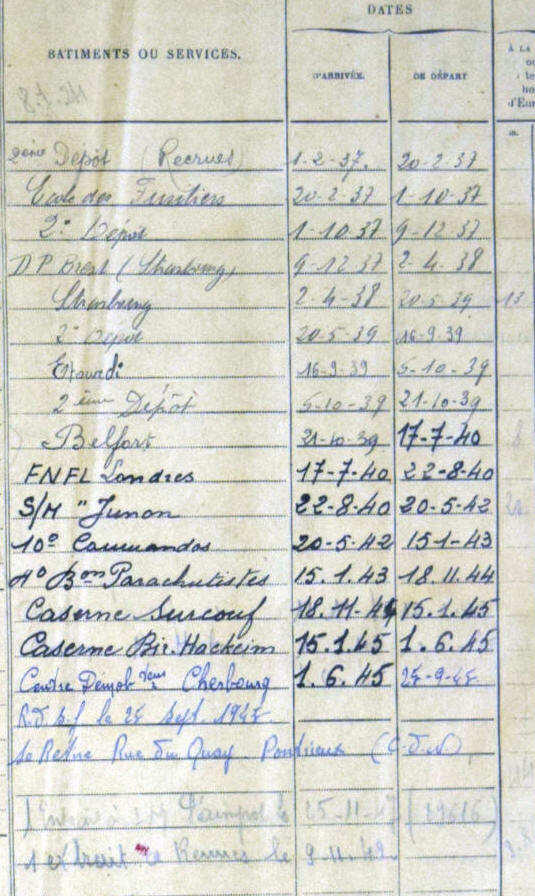 DATES
BATIMENTS OU SERVICES.
D'ARRIVÉE.
DE DÉPART
À LA
d'Eur
2ème Dépôt (Recrues) 1-2-37. 20-2-37
Ecole des Fusiliers 20-2-37 1-10-37
2e Dépôt 1-10-37 9-12-37
D.P. Brest (Strasbourg) 9-12-37 2-4-38
Strasbourg 2-4-38 20-5-39 13
2e Dépôt 20-5-39 16-9-39
Etourdi 16-9-39 5-10-39
2ème Dépôt 5-10-39 21-10-39
Belfort 21-10-39 17-7-40 8
FNFL Londres 17-7-40 22-8-40
S/M "Junon 22-8-40 20-5-42
10e Commandos 20-5-42 15-1-43
4e Bon Parachutistes 15.1.43 18.11.44
Caserne Surcouf 18.11-44 15.1.45
Caserne Bir.Hackeim 15.1.45 1.6.45
Centre Démob Cherbourg 1.6.45 25-9-45
le 25 sept. 1945
se Retire Rue du Quay Pontrieux (C-d-N)
1 Extrait à Paimpol le 25-11-47 (29616)
1 extrait Rennes le 9-11-49.